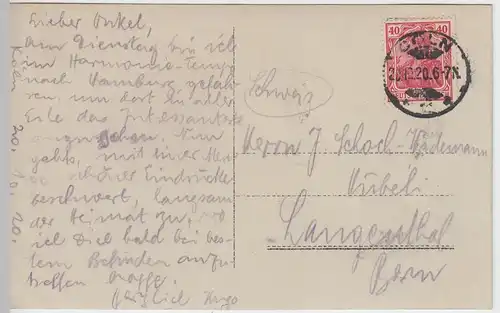 Lieber Onkel,
am Dienstag bin ich
im Harmonie-Temp
nach Hamburg gefah-
ren, um dort in aller
Eile das Interessante
anzusehen. Nun
gehts, mit einer Men-
ge schöner Eindrücke
beschwert, langsam
der Heimat zu, wo
ich Dich bald bei bes-
tem Befinden anzu-
treffen hoffe.
Herzlich Hugo
Köln 20.10.20.
40 40
CÖLN
20.6-7N.
Schweiz
Herrn J. Schoch-
Langenthal
Bern